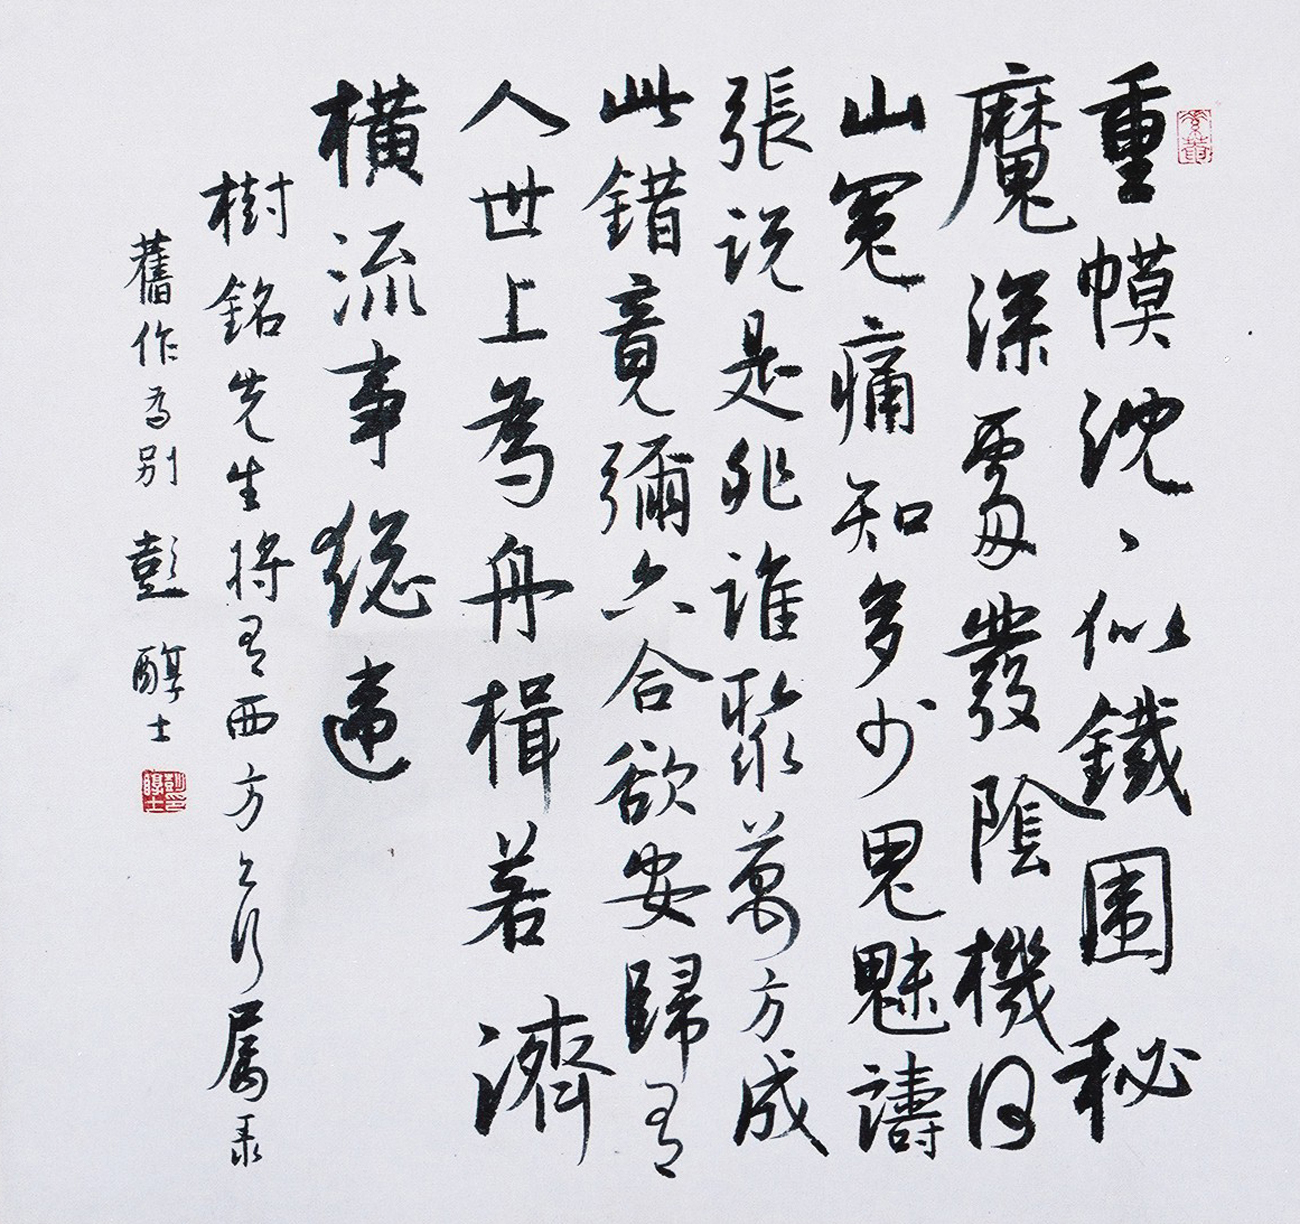 重幙沈〻似鐵圍秘
魔深處發陰機河
山冤痛知多少鬼魅譸
張說是非誰聚萬方成
此錯竟彌六合欲安歸有
人世上為舟楫若濟
橫流事總違
樹銘先生將有西方之行屬录
舊作為別 彭醇士
彭印醇士